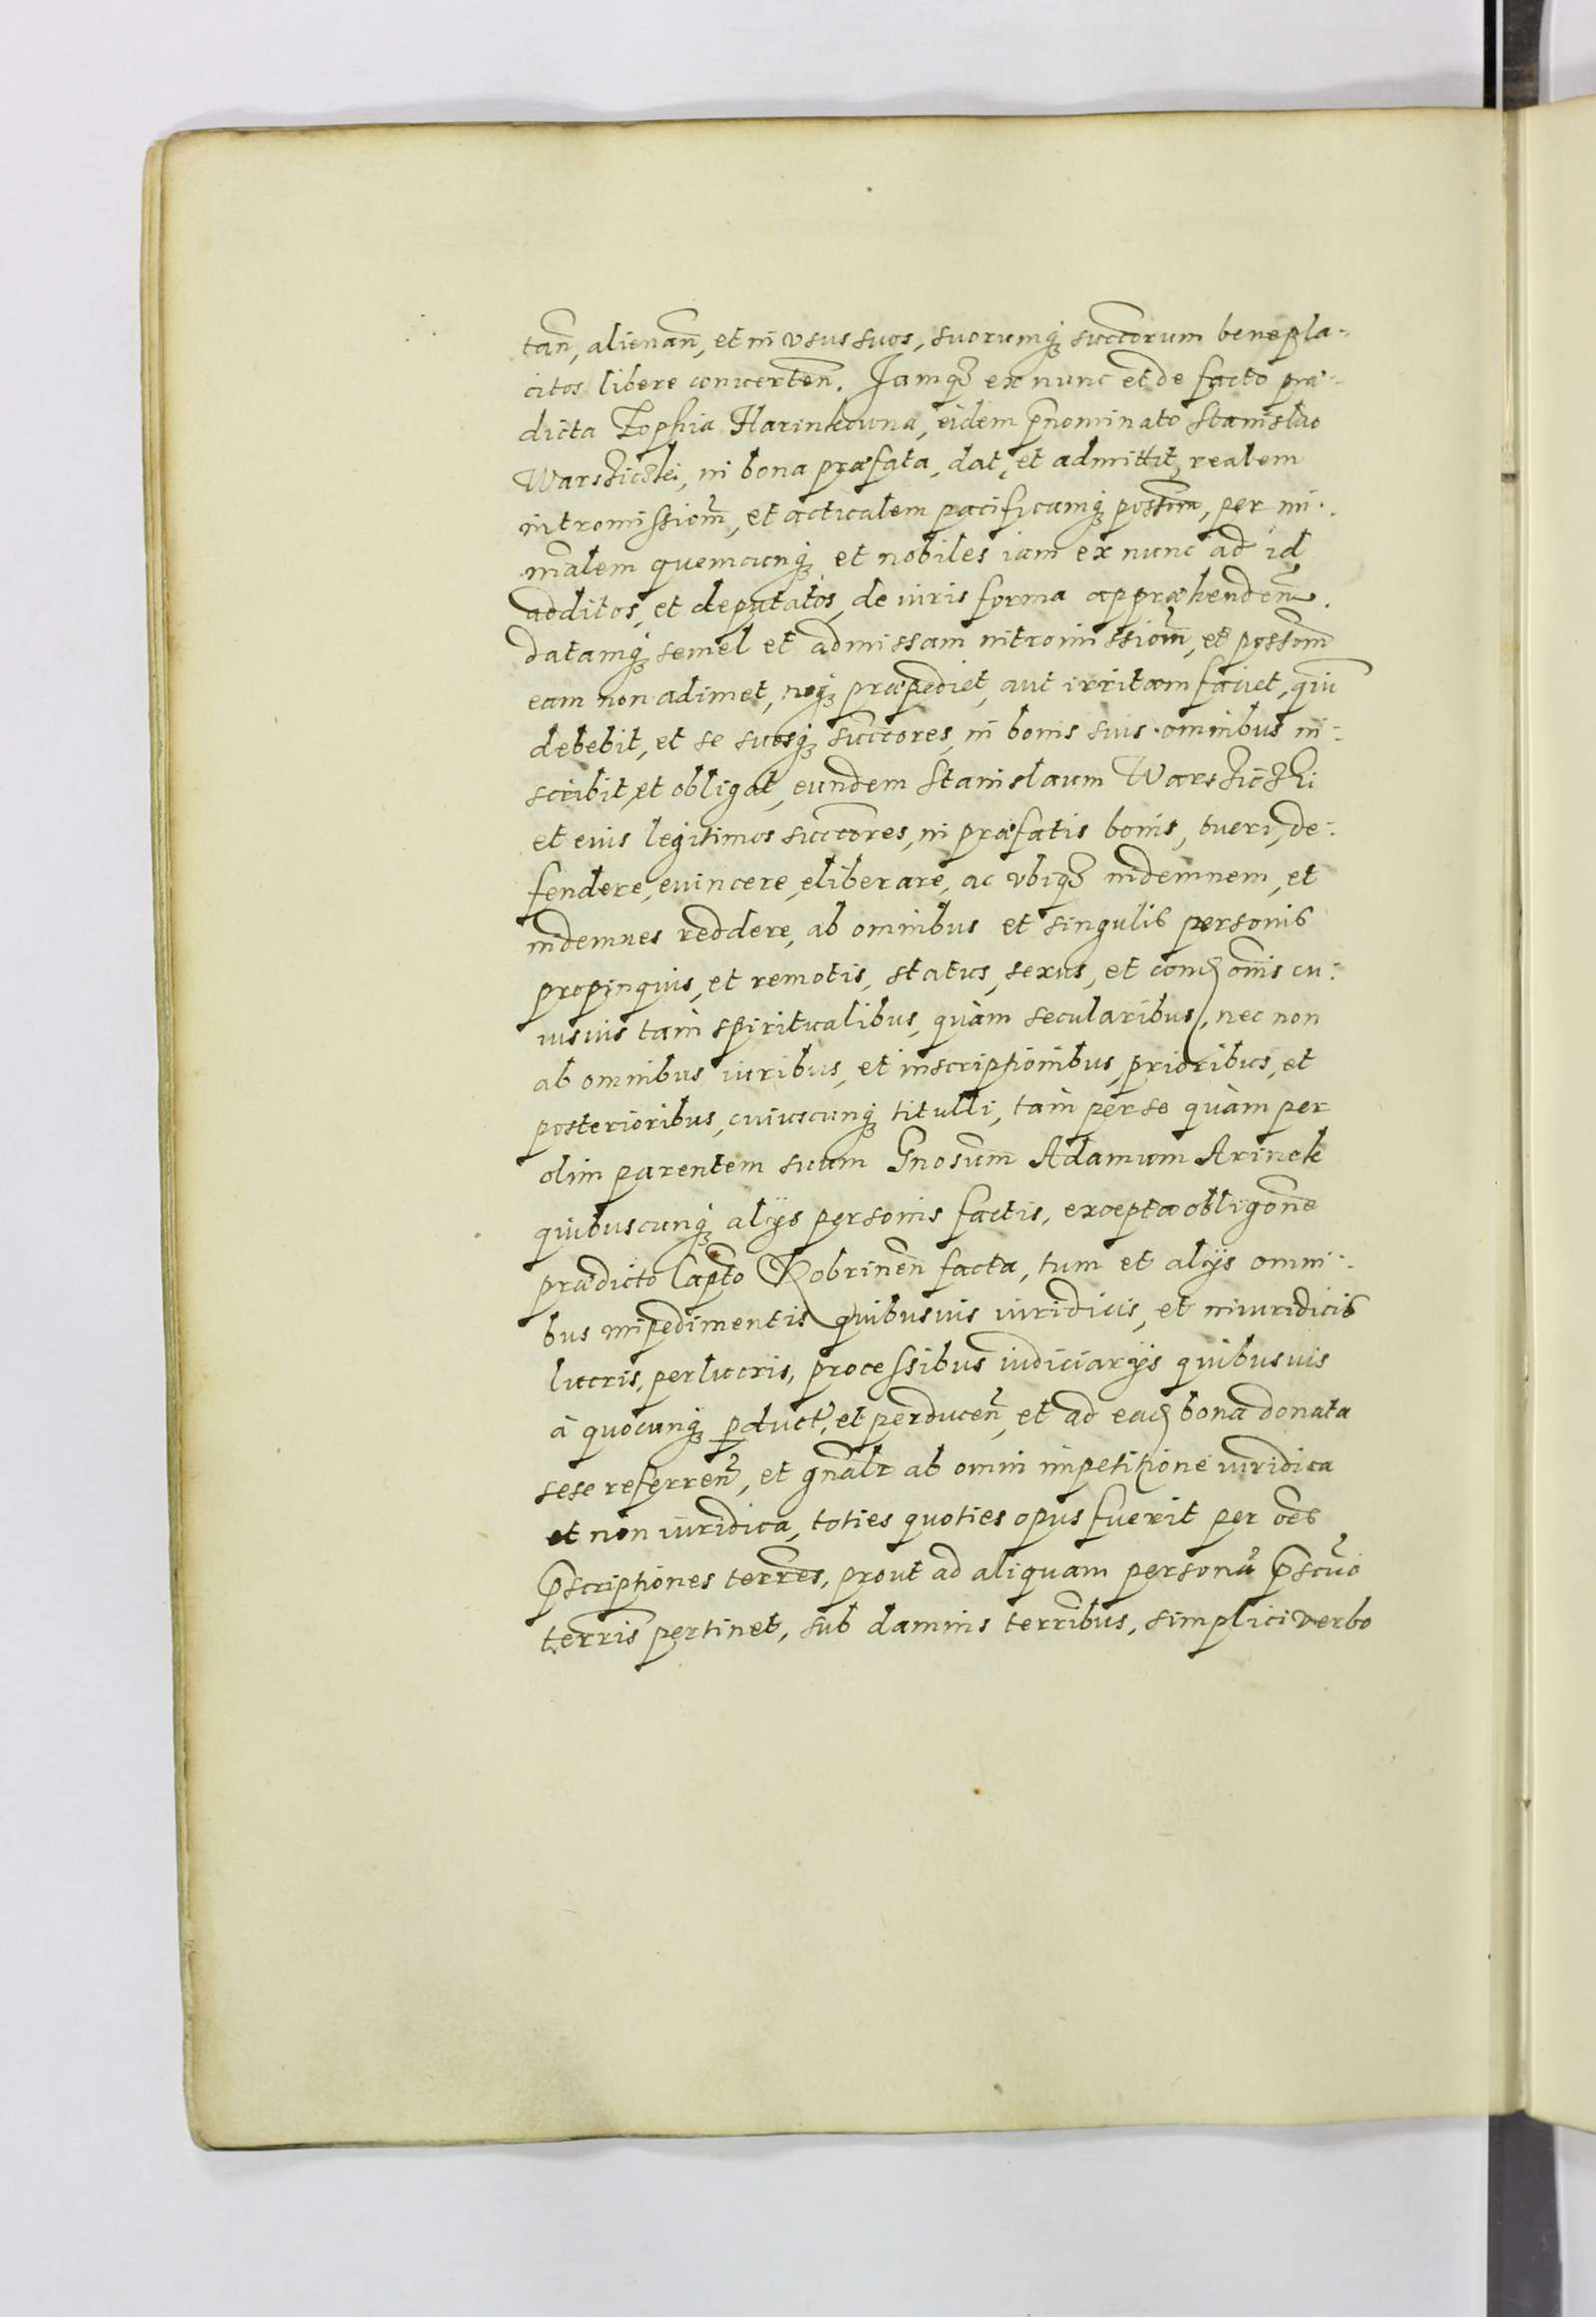 tan̄, alienan̄, et in vsus suos, suorumq́ʒ succorum benepla-
citos libere conuerten̄. Jamqʒ ex nunc et de facto præ-
dicta Zophia Harinkowna, eidem p̄nominato Stanislao
Warsziczki, in bona præfata, dat, et admittit, realem
intromissiom̄, et actualem pacificamq́ʒ possm̄, per mi-
n̄alem quemcunq́ʒ et nobiles iam ex nunc ad id
additos, et deputatos, de iuris forma appræhenden̄.
datamq́ʒ semel et admissam intromissiom̄, et possom̄
eam non adimet, neq́ʒ præpediet, aut irritam faciet, qm̄
debebit, et se suosq́ʒ succores, in bonis suis omnibus in-
scribit, et obligat, eundem Stanislaum Warsziczki
et eius legitimos succores, in præfatis bonis, tueri, de-
fendere, euincere, eliberare, ac vbiqʒ indemnem, et
indemnes reddere, ab omnibus et singulis personis
propinquis, et remotis, status, sexus, et condonis cu-
iusuis tam spiritualibus, quàm secularibus, nec non
ab omnibus iuribus, et inscriptionibus, prioribus, et
posterioribus, cuiuscunq́ʒ titulli, tam per se quàm per
olim parentem suum Gnosum̄ Adamum Arinek
quibuscunq́ʒ alijs personis factis, excepta obligone
prædicto Capto Kobrinen̄ facta, tum et alijs omni-
bus impedimentis quibusuis iuridicis, et iniuridicis
lucris, perlucris, processibus iudiciarijs quibusuis
à quocunq́ʒ pduct, et perducen̄, et ad ead bona donata
sese referren̄, et gn̄alr ab omni impetitione iuridica
et non iuridica, toties quoties opus fuerit per oēs
p̄scriptiones terres, prout ad aliquam personā p̄scrio
terris pertinet, sub damnis terribus, simplici verbo